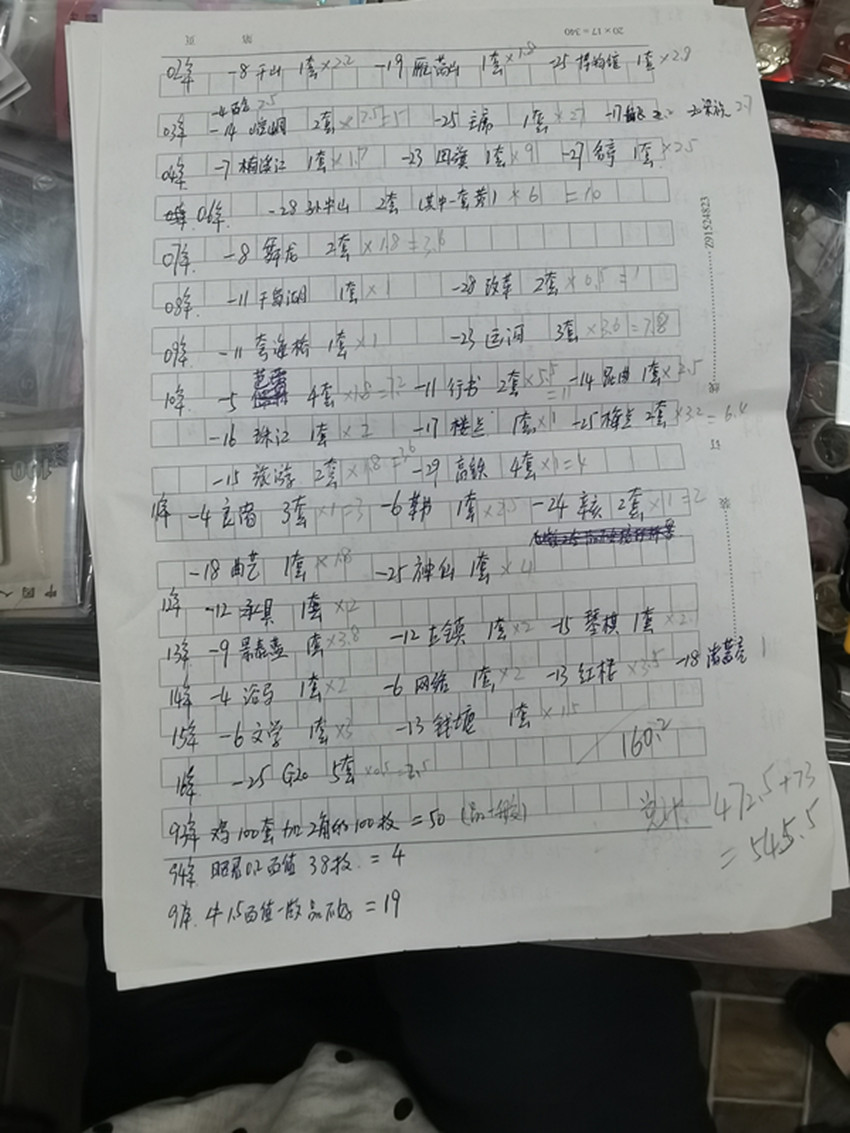 20×17=340
02年 -8千山 1套×2.2 -19雁荡山 1套×1.8 -25博物馆 1套×2.9
-4百合 2.5
03年 -14崆峒 2套×2.5=5 -25主席 1套×27
04年 -7楠溪江 1套×1.7 -23国旗 1套×9 -27名亭 1套×2.5
06年 -28孙中山 2套(其中一套黄)×6 =10
07年 -8舞龙 2套×1.8=3.6
08年 -11千岛湖 1套×1 -28改革 2套×0.5=1
09年 -11 1套×1 -23运河 3套×3.6=7.8
10年 -5芭蕾 4套×1.8=7.2 -11行书 2套×5.5=11 -14昆曲 1套×2.5
-16珠江 1套×2 -17楼兰 1套×1 -25梅兰 2套×3.2=6.4
-15旅游 2套×1.8=3.6 -29高铁 4套×1=4
11年 -4 3套×1=3 -6草书 1套×2.5 -24辛亥 2套×1=2
-18曲艺 1套×1.8 -25神仙 1套×4
12年 -12 1套×2
13年 -9景泰蓝 1套×3.8 -12古镇 1套×2 -15琴棋 1套
14年 -4浴马 1套×2 -6网络 1套×2 -13红楼×3.5 -18诸葛亮 1
15年 -6文学 1套×3 -13钱塘 1套×1.5
160.2
16年 -25 G20 5套×0.5=2.5
93年 鸡100套加2角的100枚=50(品一般)
总计 472.5+73
=545.5
94年 昭君0.2面值38枚 =4
97年 牛1.5面值一版品不好 =19
Z91524823